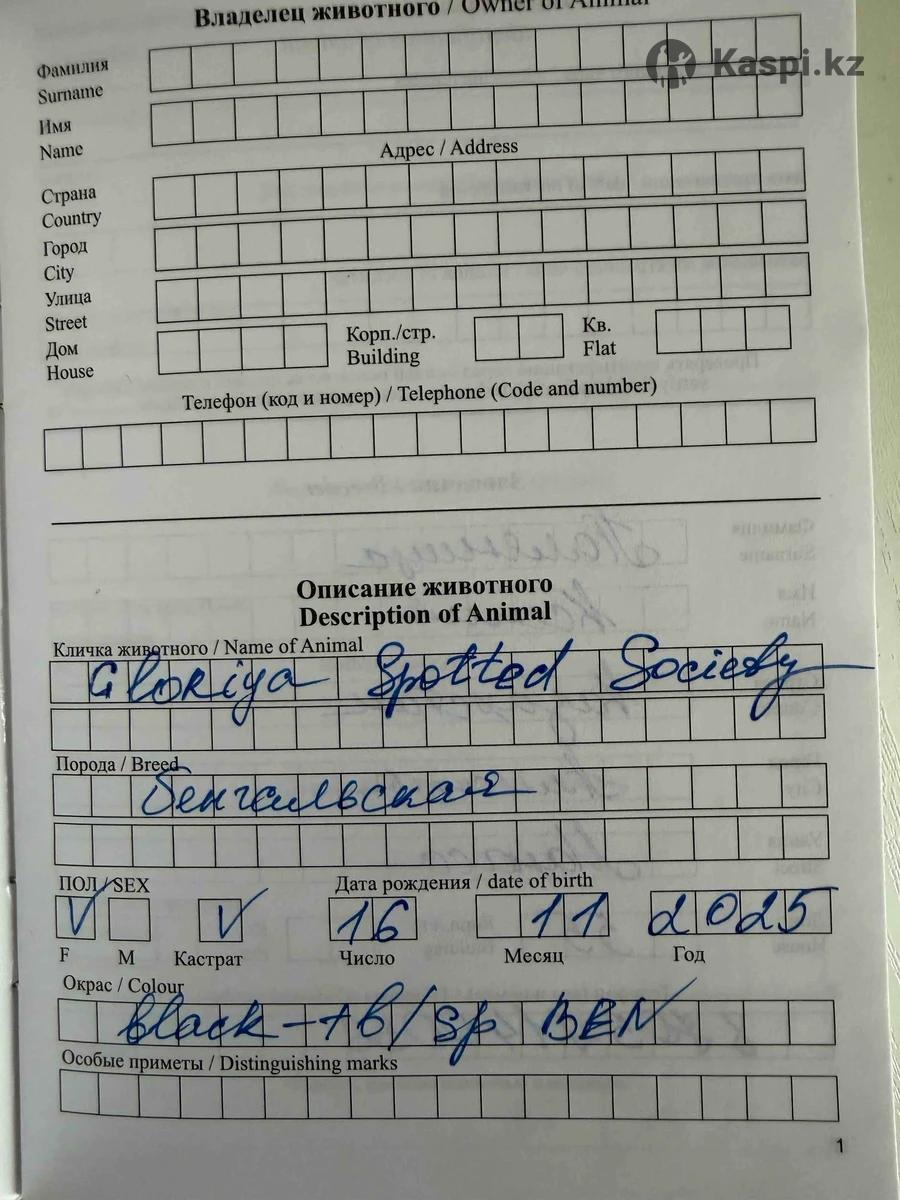 Владелец животного / Owner of Animal
Kaspi.kz
Фамилия
Surname
Имя
Name
Адрес / Address
Страна
Country
Город
City
Улица
Street
Дом
House
Корп./стр.
Building
Кв.
Flat
Телефон (код и номер) / Telephone (Code and number)
Описание животного
Description of Animal
Кличка животного / Name of Animal
Gloriya Spotted Society
Порода / Breed
Бенгальская
ПОЛ/SEX
Дата рождения / date of birth
V V 16 11 2025
F M Кастрат Число Месяц Год
Окрас / Colour
black-tb/sp BEN
Особые приметы / Distinguishing marks
1